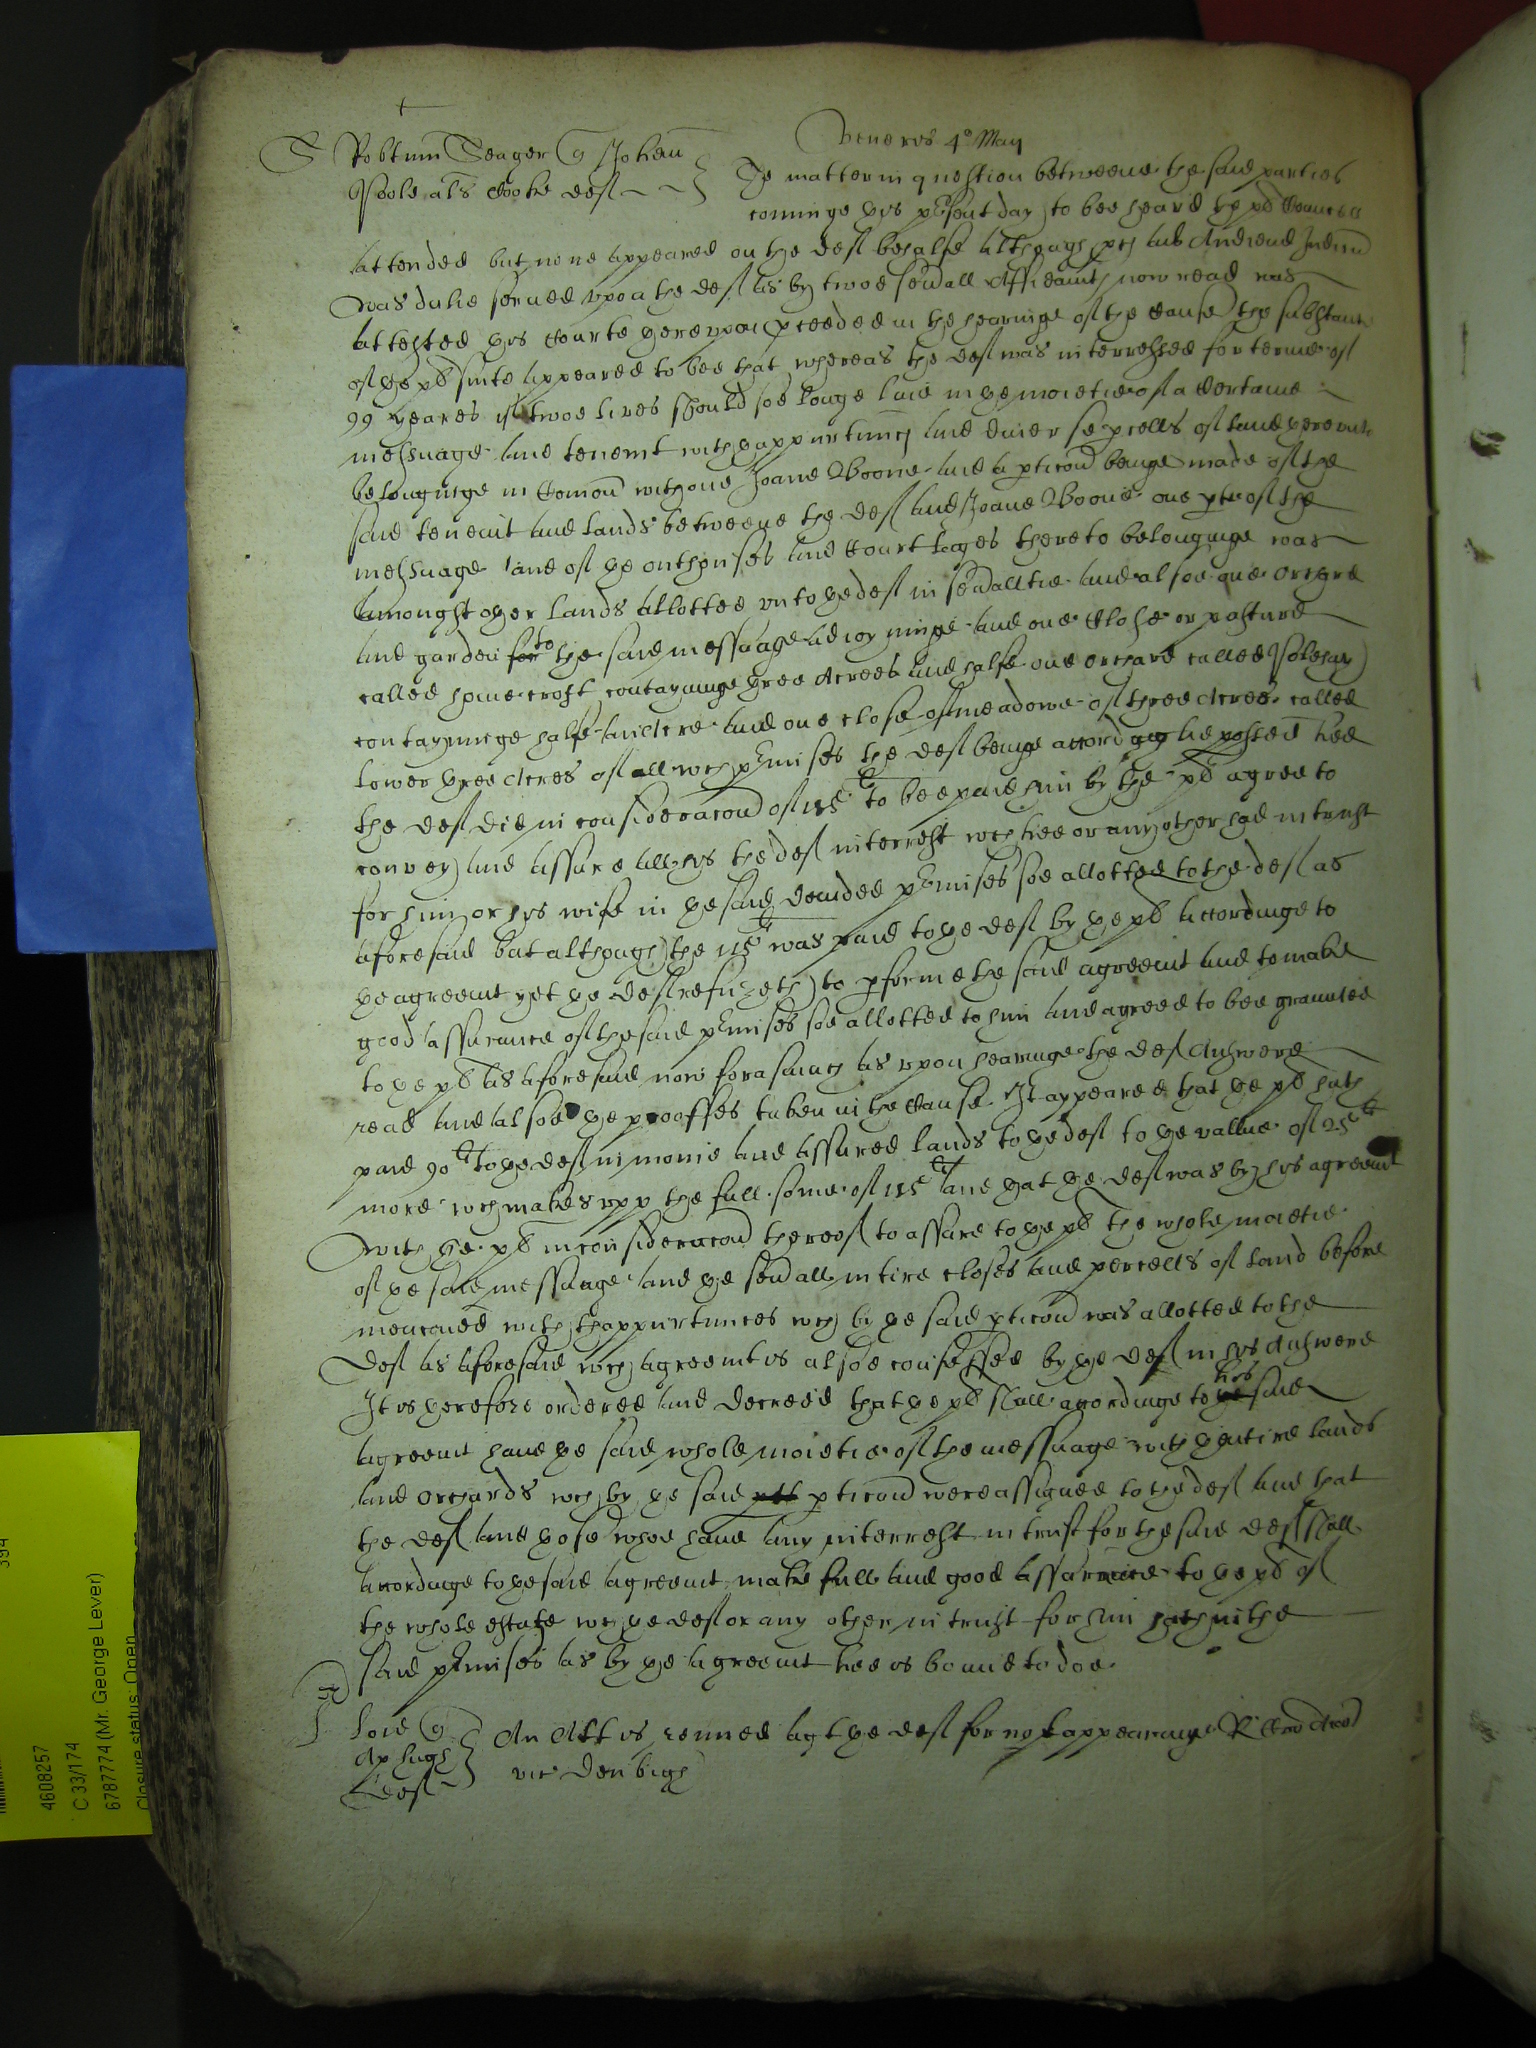 Veneris 4º Maij
S Robtum Seager q Johem
Poole als Cooke def
The matter in question betweene the said parties
cominge this pñsent day to bee heard the pl Councell
attended but none appeared on the def behalfe although pces ad Audiend Iudiciu
was dulie served upon the def as by twoe sevall Affidavits now read was
attested this Courte thereupon pceeded in the hearinge of the cause the substance
of the pl suite appeared to bee that whereas the def was interressed for terme of
99 yeares if twoe lives should soe longe live in the moietie of a certaine
messuage and tenemt with thappurtunncs and diverse pcells of land therevnto
belonginge in Comon with one Joane Boone and a pticon beinge made of the
said tenemt and lands betweene the def and Joane Boone one pte of the
messuage and of the outhouses and Courtlages thereto belonginge was
amongst other lands allotted unto the def in sevaltie and alsoe one Orchard
and garden for to the said messuage adioyninge and one Close or pasture
called home croft contayninge three Acres and halfe one orchard called Polehay
contayninge halfe an Acre and one close of meadowe of three Acres called
lower three Acres of all wch pmises the def beinge accordingly possessed hee
the def did in consideracon of 115li to bee paid him by the pl agree to
convey and assure all his the def interrest wch hee or any other had in trust
for him or his wife in the said devided pmises soe allotted to the def as
aforesaid but although the 115li was paid to the def by the pl accordinge to
the agreemt yet the def refuzeth to pforme the said agreemt and to make
good assurance of the said pmises soe allotted to him and agreed to bee graunted
to the pl as aforesaid now forasmuch as upon hearinge the def Answere
read and alsoe the prooffes taken in the Cause It appeared that the pl hath
paid 90li to the def in monie and assured lands to the def to the vallue of 25li
more wch makes upp the full some of 115li and that the def was by his agreemt
with the pl in consideracon thereof to assure to the pl the whole moietie
of the said messuage and the sevall intire closes and percells of land before
menconed with thappurtunces wch by the said pticon was allotted to the
def as aforesaid wch agreemt is alsoe confessed by the def in his Answere
It is therefore ordered and decreed that the pl shall accordinge to the his said
agreemt have the said whole moietie of the messuage with thentire lands
and orchards wch by the said pticon were assigned to the def and that
the def and those whoe have any interrest in trust for the said def shall
accordinge to the said agreemt make full and good assurance to the pl of
the whole estate wch the def or any other in trust for him hath in the
said pmises as by the agreemt hee is bound to doe
lloid q
Ap hugh
def
An Att is renued agt the def for not appearinge
vic denbigh
394
4608257
C 33/174
6787774 (Mr. George Lever)
Closure status: Open